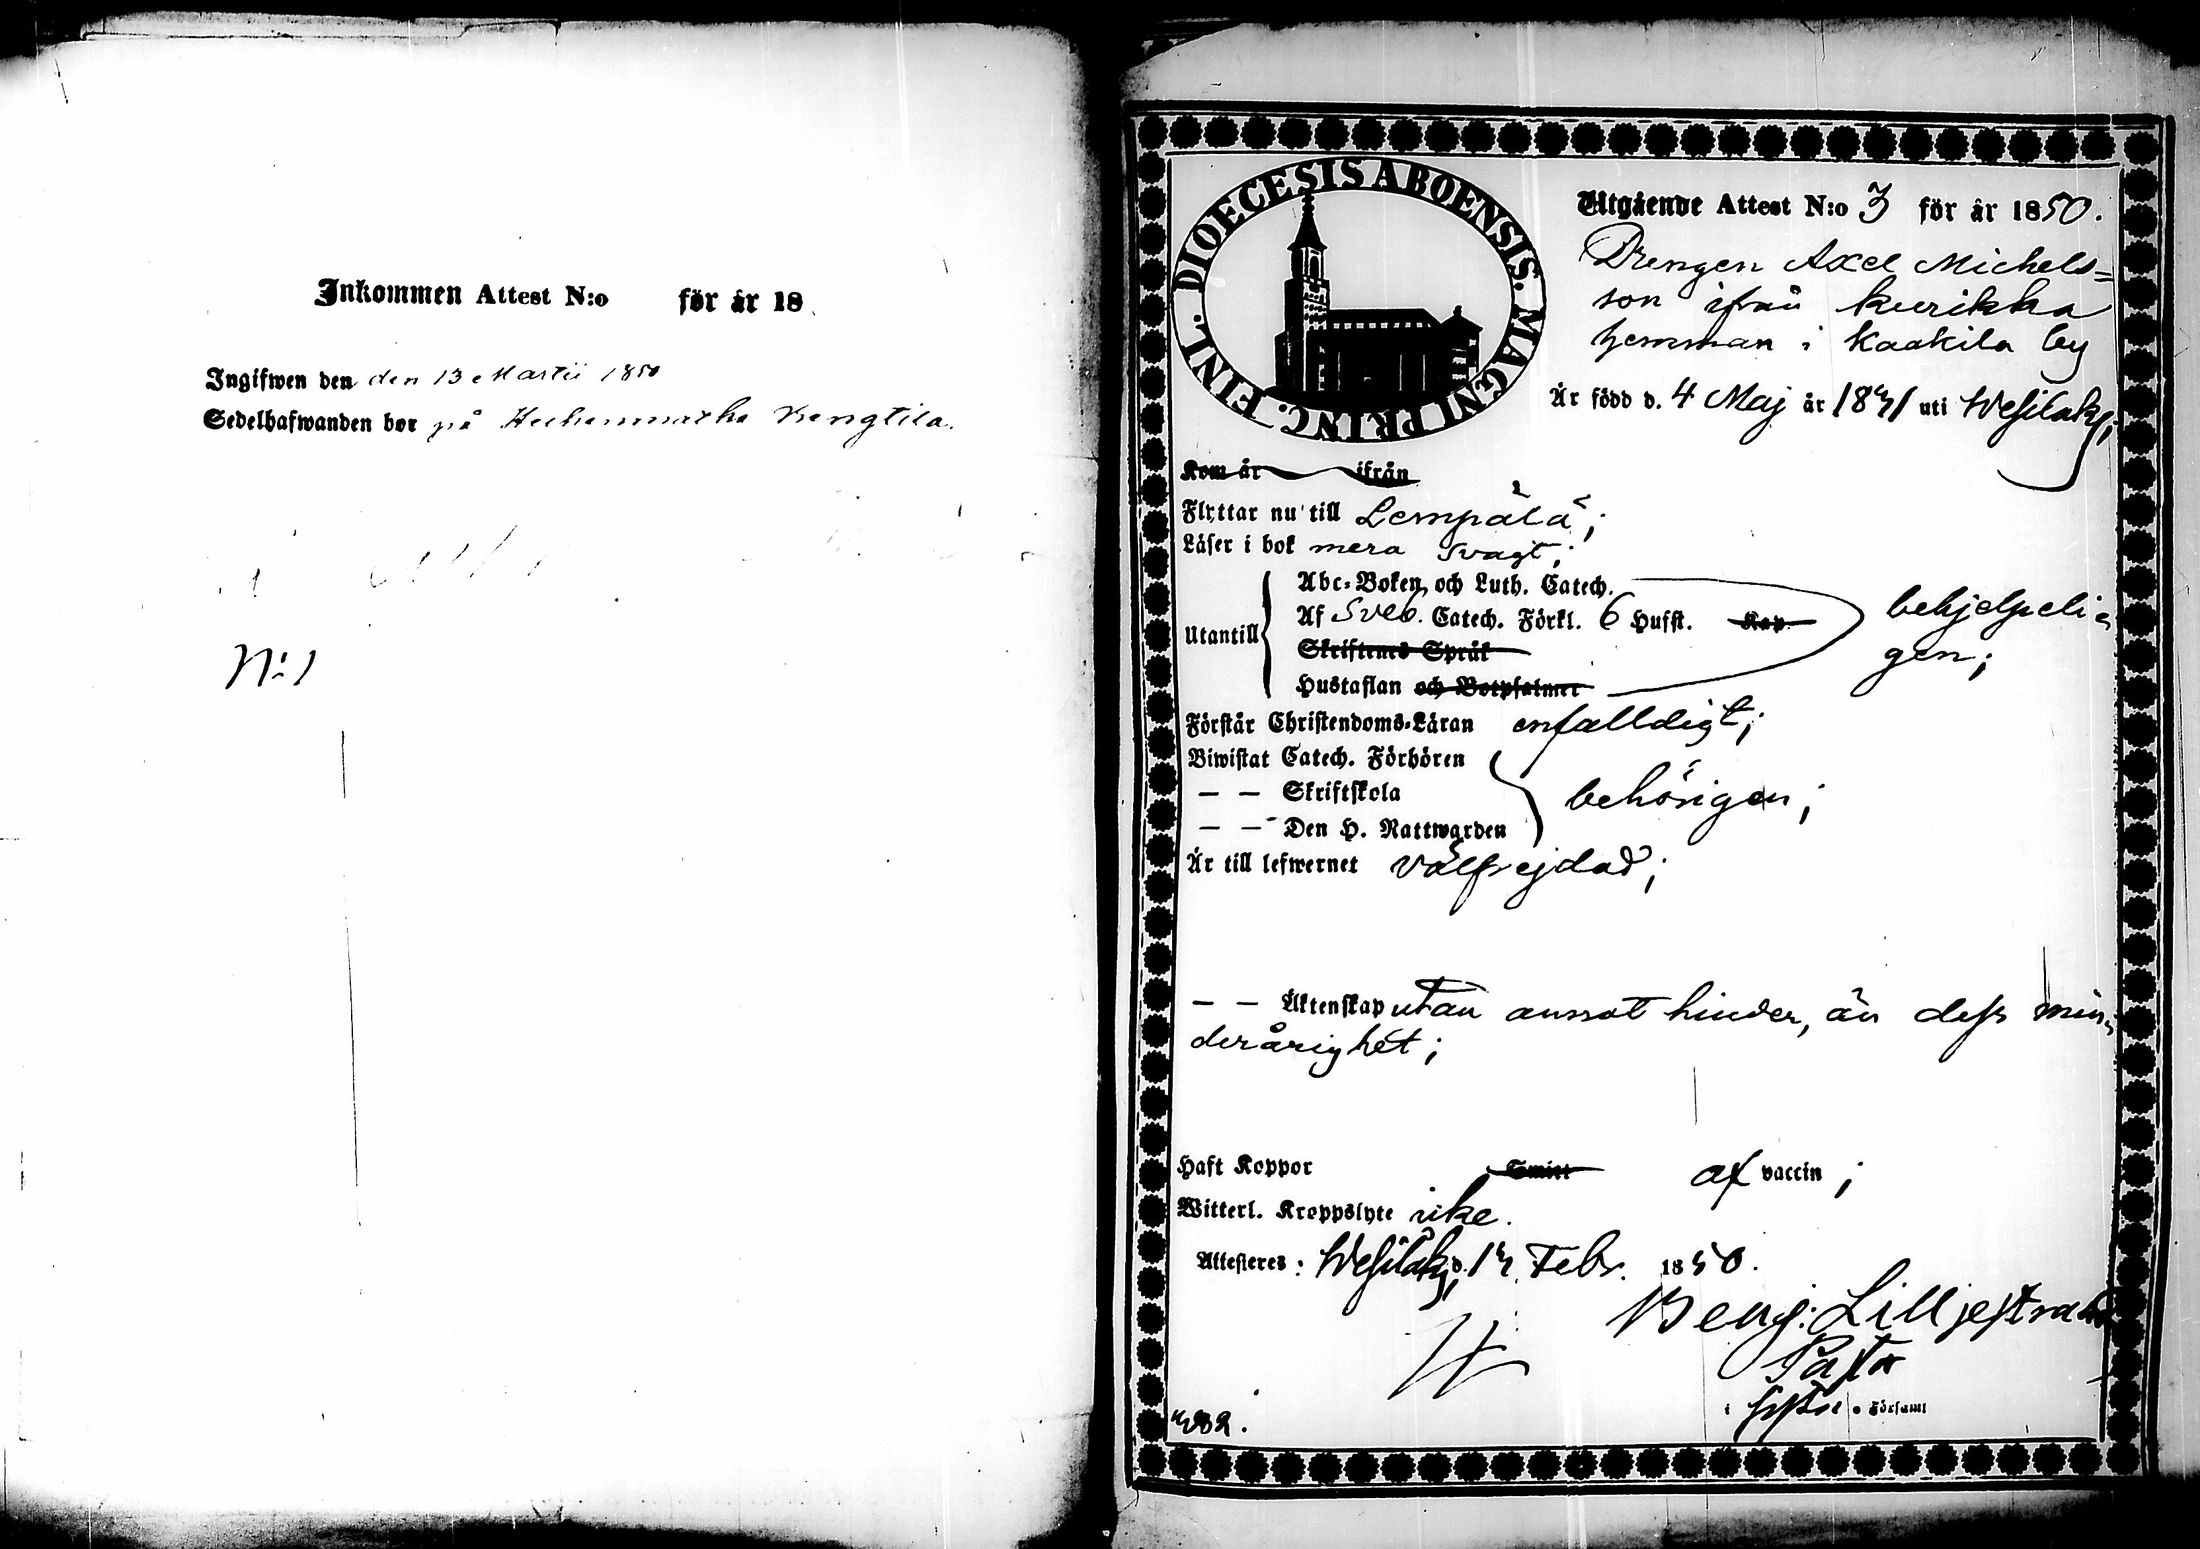 Inkommen Attest N:o för år 18
Ingifwen den den 13 Martii 1850
Sedelhafwanden bor på Kengtila.
N:1
DIOECESIS ABOENSIS. MAGNI PRINC. FINL.
Utgående Attest N:o 3 för år 1850.
Drengen Axel Michels=
son ifrån Kurikka
hemman i Kaakila by
Är född d. 4 Maj år 1831 uti Wesilaks;
Kom år ifrån
Flyttar nu till Lempälä;
Läser i bok mera svagt;
Utantill
Abc=Boken och Luth. Catech.
Af Sveb. Catech. Förkl. 6 Hufst. Kap.
Skriftenes Språk
Hustaflan och Botpsalmer
behjelpeli=
gen;
Förstår Christendoms=Läran enfalldigt;
Biwistat Catech. Förhören
— — Skriftskola
— — Den H. Nattwarden
behörigen;
Är till lefwernet välfrejdad;
— — Äktenskap utan annat hinder, än dess min=
derårighet;
Haft Koppor Smitt af vaccin;
Witterl. Kroppslyte icke.
Attesteres: Wesilaks, d. Febr. 1850.
Benj: Lilljestrand
Pastor
i Församl